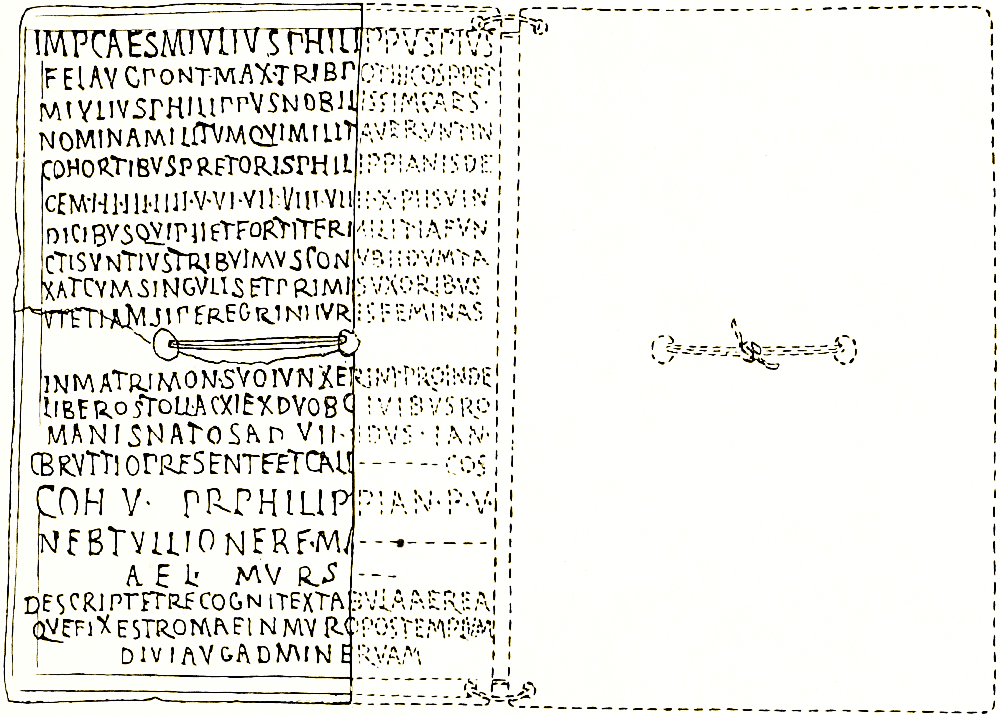 IMPCAESMIVLIVSPHILIPPVSPIVS
FELAVGPONT·MAX·TRIBPOTIIICOSPPET
MIVLIVSPHILIPPVSNOBILISSIMCAES·
NOMINAMILITVMQVIMILITAVERVNTIN
COHORTIBVSPRETORISPHILIPPIANISDE
CEM·I·II·III·IIII·V·VI·VII·VIII·VIIII·X·PIISVIN
DICIBVSQVIPIIETFORTITERMILITIAFVN
CTISVNTIVSTRIBVIMVSCONVBIIDVMTA
XATCVMSINGVLISETPRIMISVXORIBVS
VTETIAMSIPEREGRINIIVRISFEMINAS
INMATRIMON·SVOIVNXERINTPROINDE
LIBEROSTOLLACXIEXDVOBCIVIBVSRO
MANISNATOSAD VII·IDVS·IAN·
CBRVTTIOPRESENTEETCALL COS
COH V· PRPHILIPPIAN·P·V·
NEBTVLLIO NERF·M
AEL· MVRS
DESCRIPTETRECOGNITEXTABVLAAEREA
QVEFIXESTROMAEINMVROPOSTEMPLVM
DIVIAVGADMINERVAM